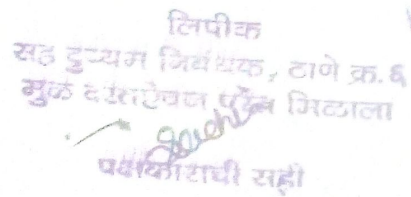 लिपीक
सह दुय्यम निबंधक, ठाणे क्र. ६
मुळ दस्तऐवज परत मिळाला
पक्षकाराची सही